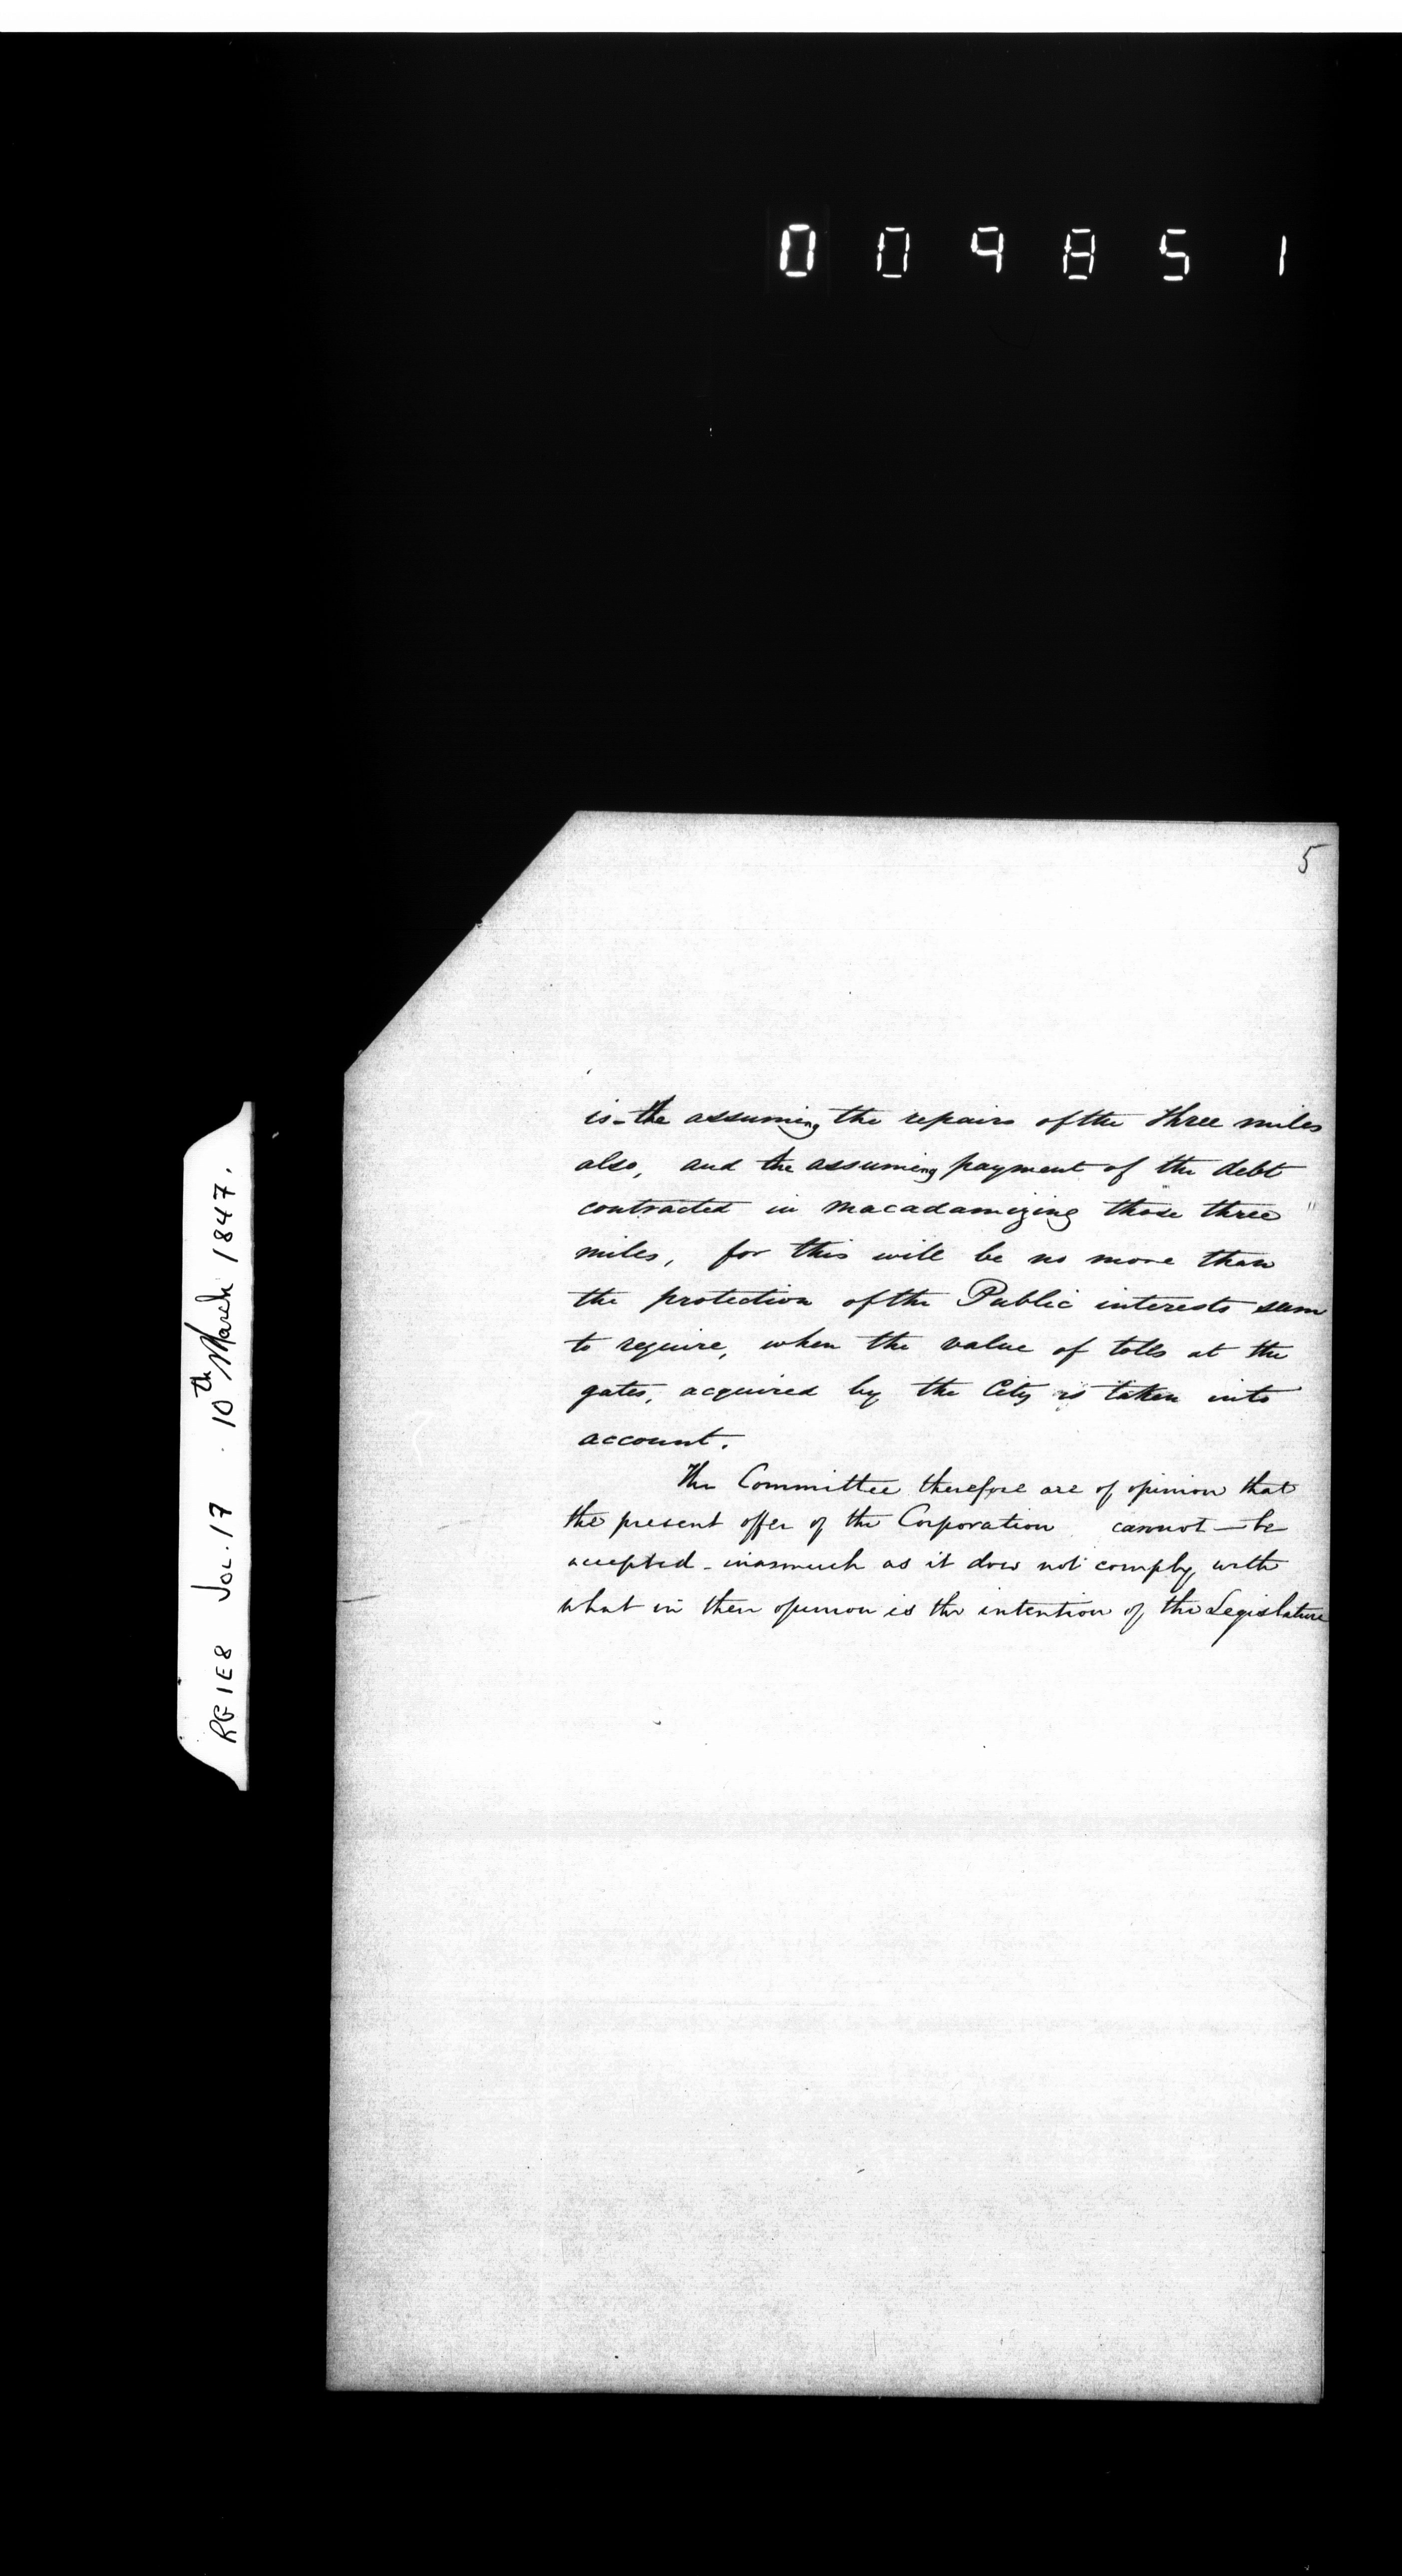 009851
5
is the assuming the repairs of the three miles
also, and the assuming payment of the debt
contracted in macadamizing those three
miles, for this will be no more than
the protection of the Public interests seem
to require, when the value of tolls at the
gates, acquired by the City is taken into
account.
The Committee therefore are of opinion that
the present offer of the Corporation cannot — be
accepted - inasmuch as it does not comply with
what in their opinion is the intention of the Legislature
RG1E8 Vol. 17 . 10th March 1847.